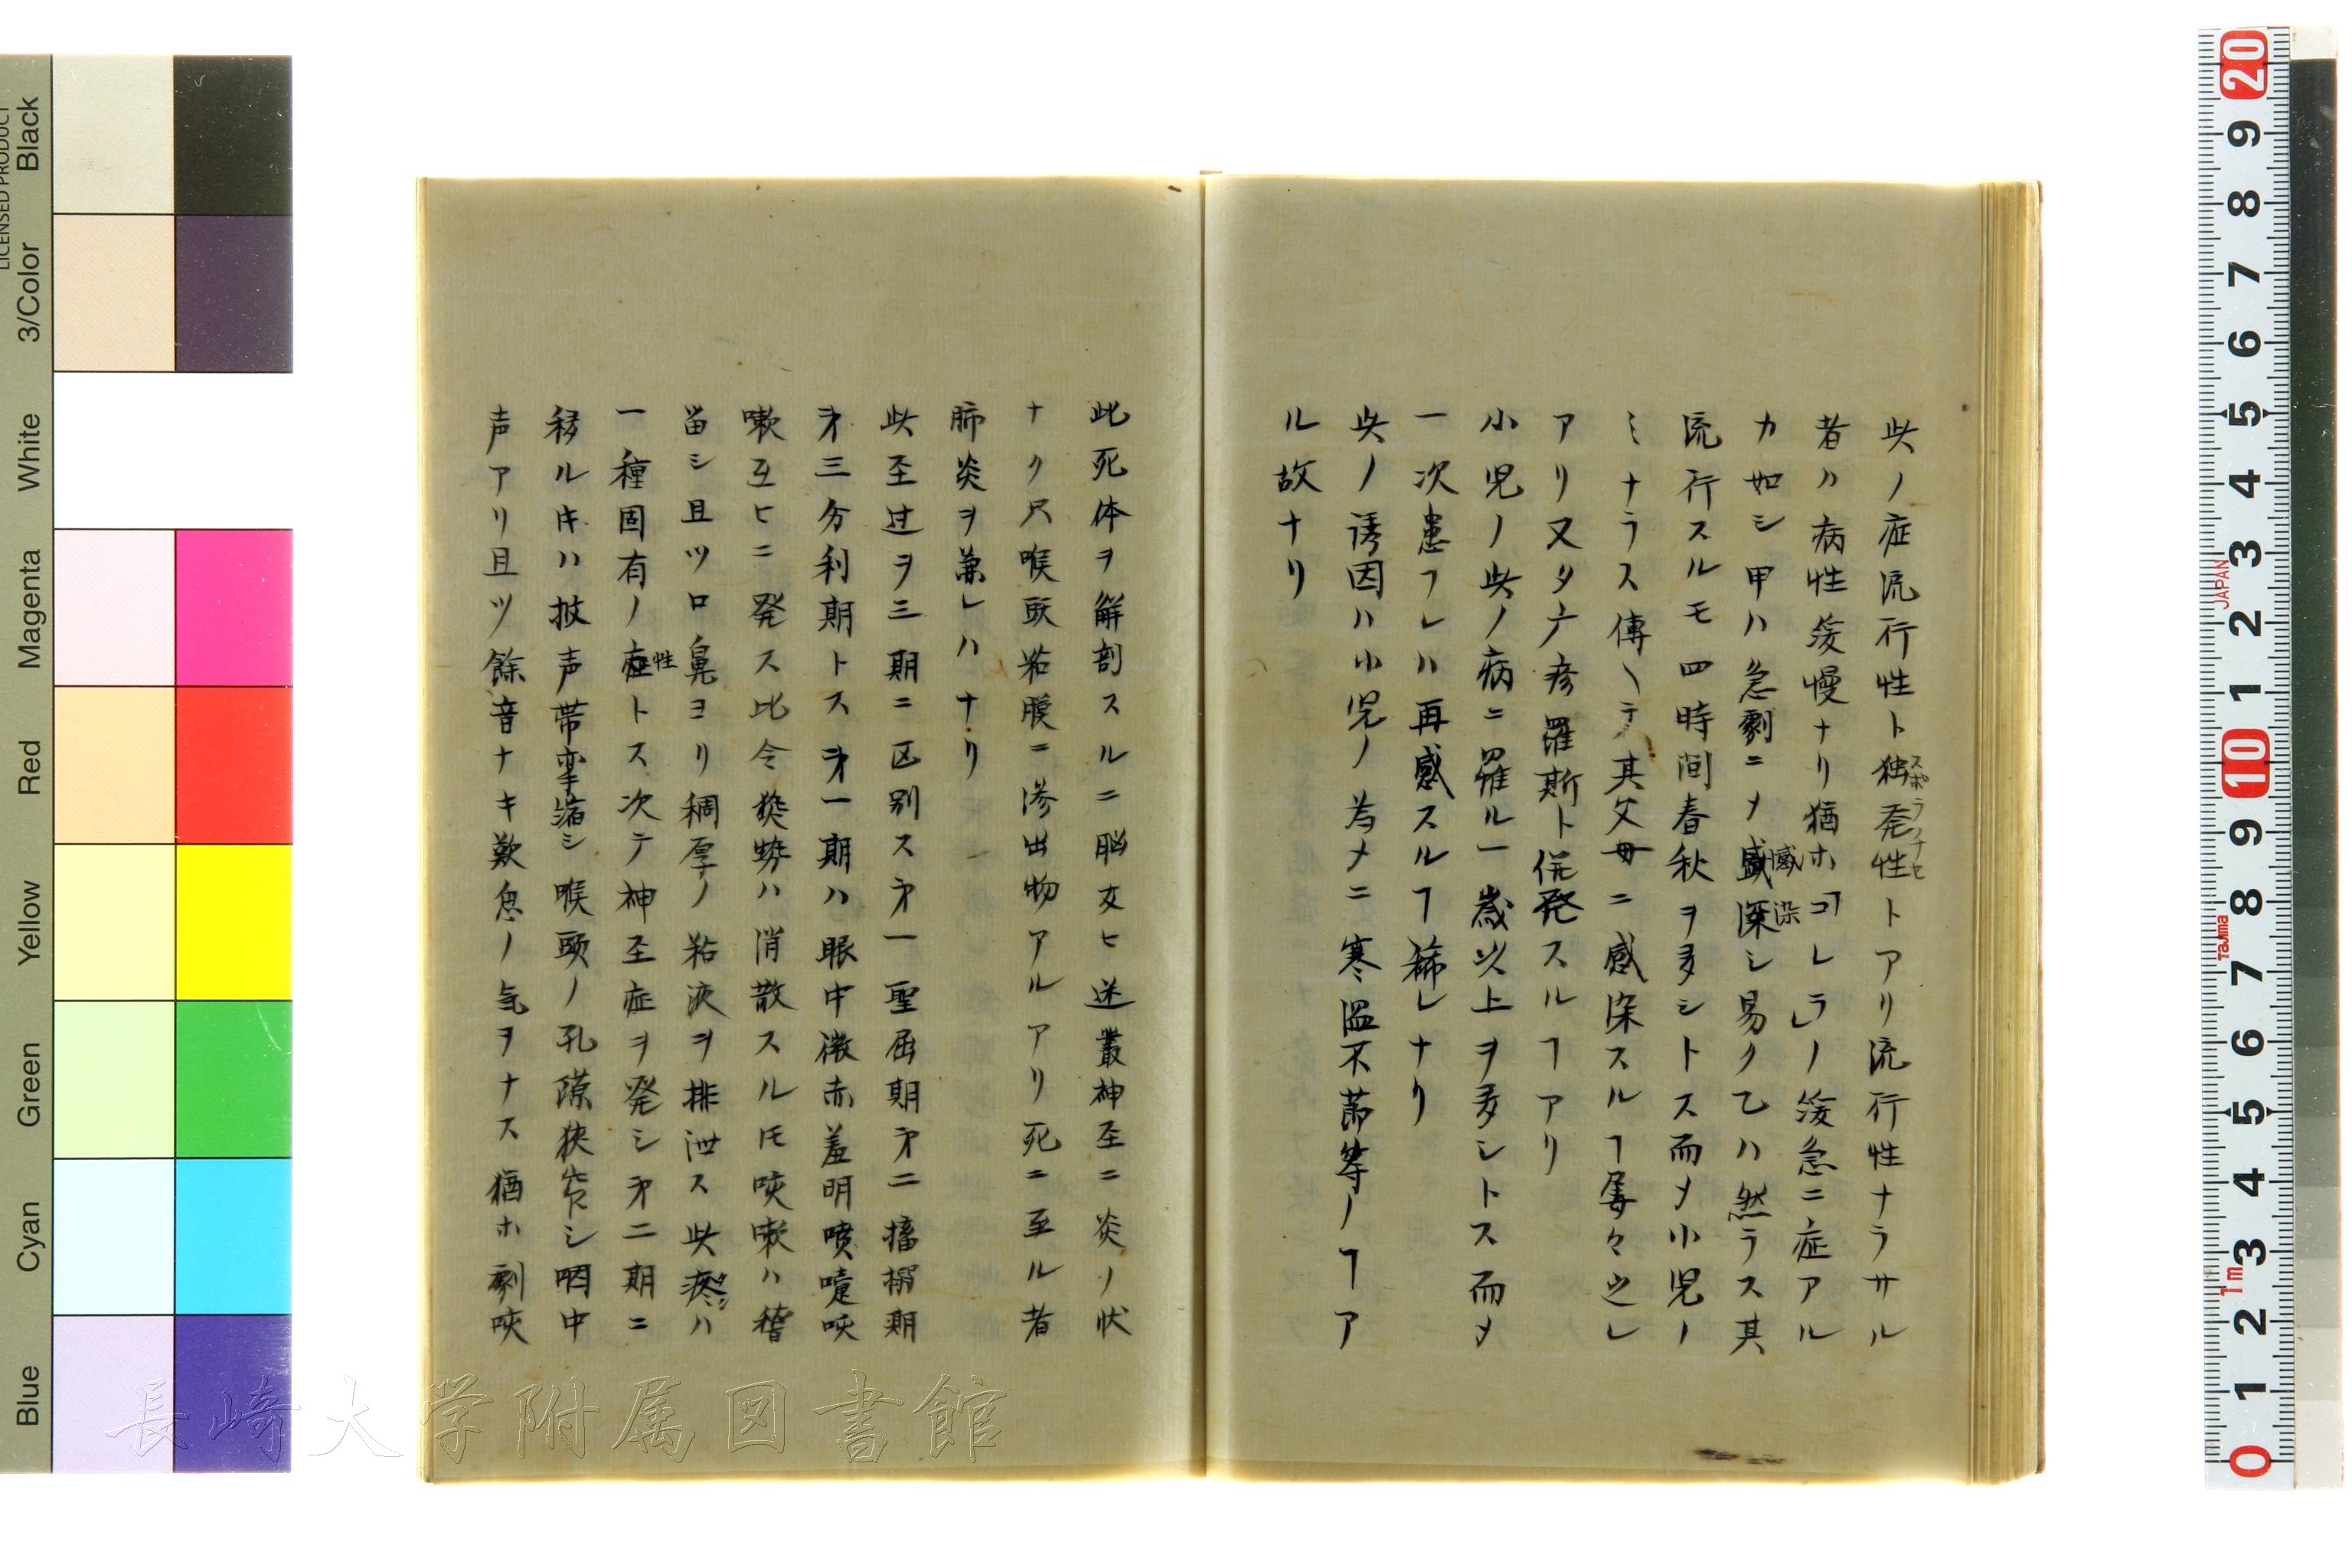 此ノ症流行性ト独発性トアリ流行性ナラサル
スポラヂセ
者ハ病性緩慢ナリ猶ホ「コレラ」ノ緩急ニ症アル
カ如シ甲ハ急劇ニメ感染シ易ク乙ハ然ラス其
感染
流行スルモ四時间春秋ヲ多シトス而メ小児ノ
ミナラス傳ヘテ其父母ニ感染スルヿ屡々之レ
アリ又タ疹羅斯ト併発スルヿアリ
小児ノ此ノ病ニ罹ル一歳以上ヲ多シトス而メ
一次患フレハ再感スルヿ稀レナリ
此ノ誘因ハ小児ノ為メニ寒温不節等ノヿア
ル故ナリ
此死体ヲ解剖スルニ脳及ヒ迷叢神至ニ炎ノ状
ナク尺喉頭粘膜ニ滲出物アルアリ死ニ至ル者
肺炎ヲ兼レハナリ
此至过ヲ三期ニ区别ス才一聖届期才二搐搦期
才三分利期トス才一期ハ眼中微赤羞明噴嚔咳
嗽互ヒニ発ス比令熱勢ハ消散スルモ咳嗽ハ稽
畄シ且ツ口鼻ヨリ稠厚ノ粘液ヲ排泄ス此痰ハ
一種固有ノ症トス次テ神至症ヲ発シ才二期ニ
性
移ルキハ披声帯挛縮シ喉頭ノ孔隙狭窄シ咽中
声アリ且ツ餘音ナキ歎息ノ気ヲナス猶ホ劇咳
長崎大学附属図書館
LICENSED PRODUCT
Black
3/Color
White
Magenta
Red
Yellow
Green
Cyan
Blue
20 9 8 7 6 5 4 3 2 1 10 9 8 7 6 5 4 3 2 1 0
JAPAN
Tajima
1m